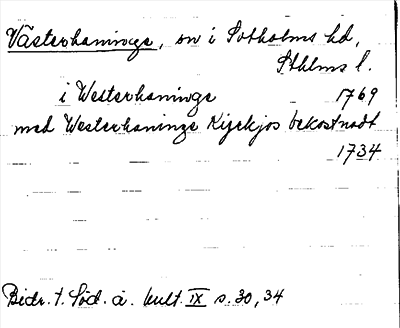 Västerhaninge, sn i Sotholms hd,
Sthlms l.
i Westerhaninge 1769
med Westerhaninge Kyrkjos bekostnadt
1734
Bidr. t. Söd. ä. kult. IX s. 30, 34